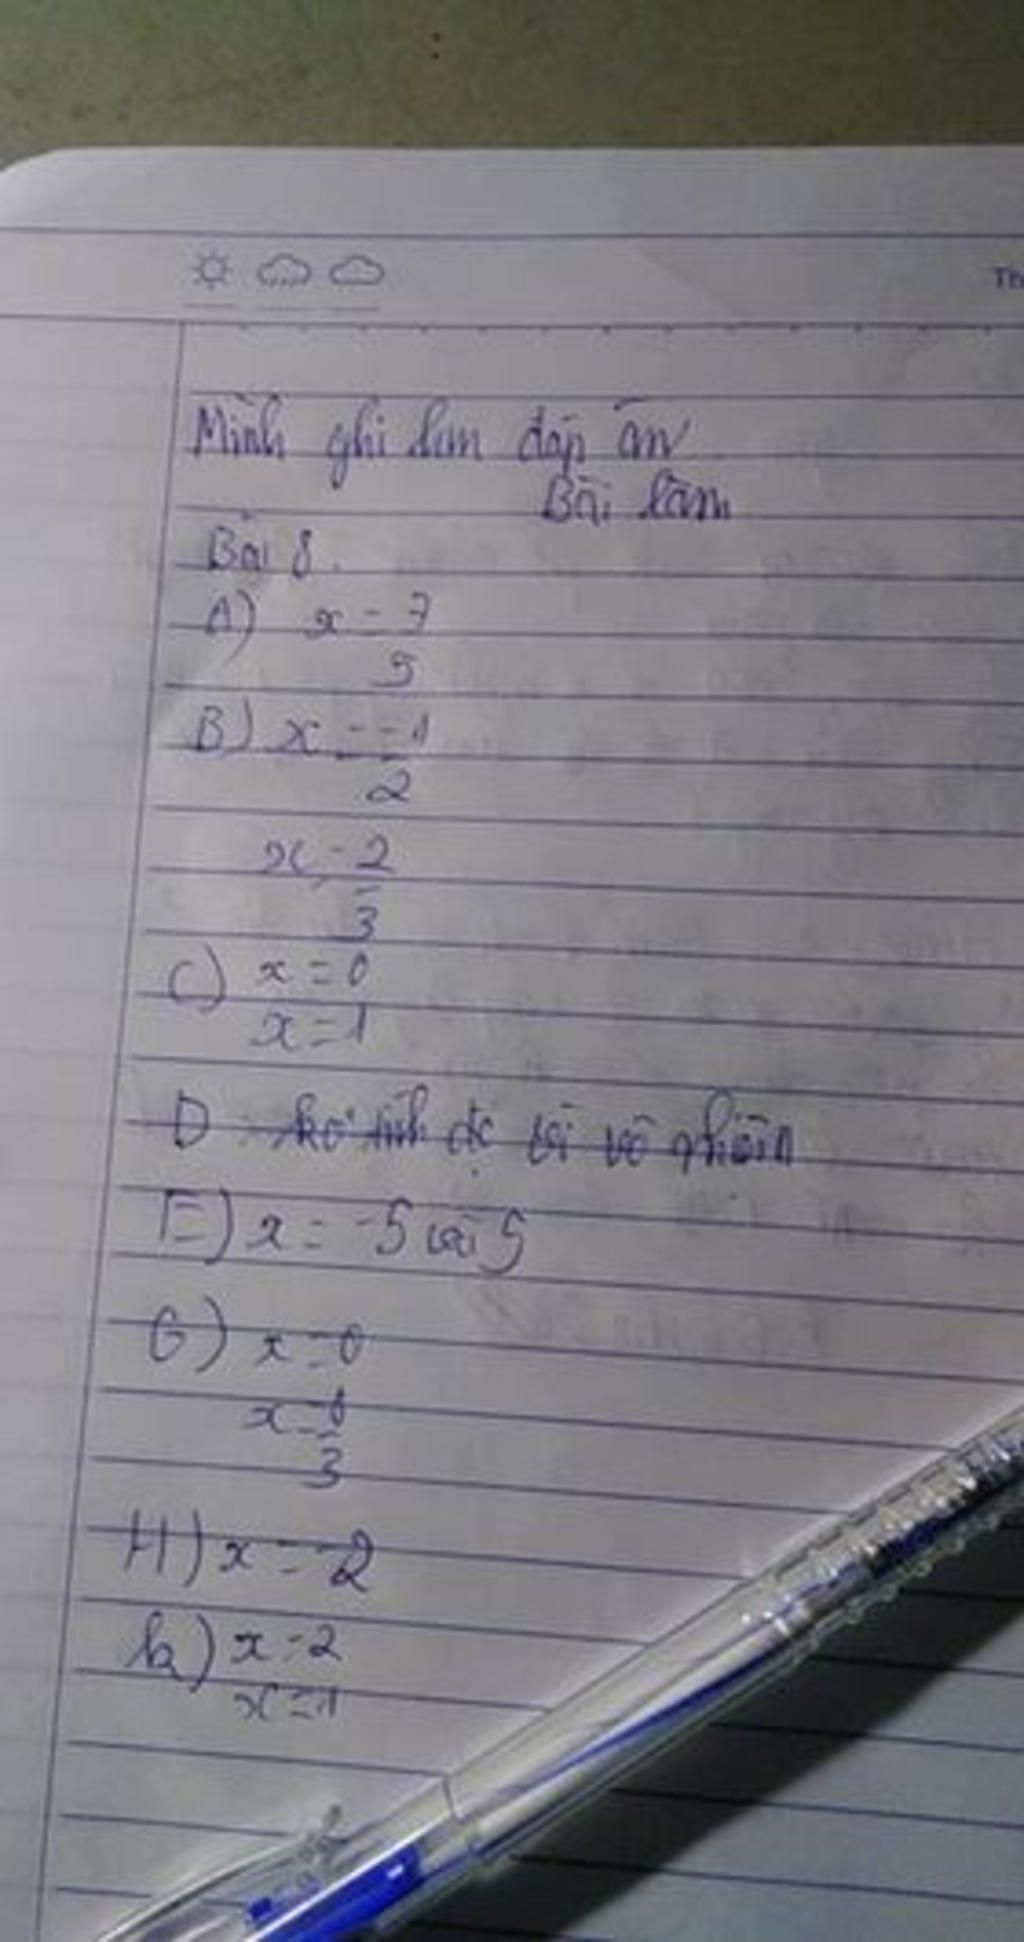 Th
Mình ghi lun đáp án
Bài làm
Bài 8.
A) x = 7
5
B) x = -1
2
x = 2
3
C) x = 0
x = 1
D ko tính đc vì vô nhiên
E) x = -5 và 5
G) x = 0
x =
3
H) x = -2
k) x = 2
x = 1